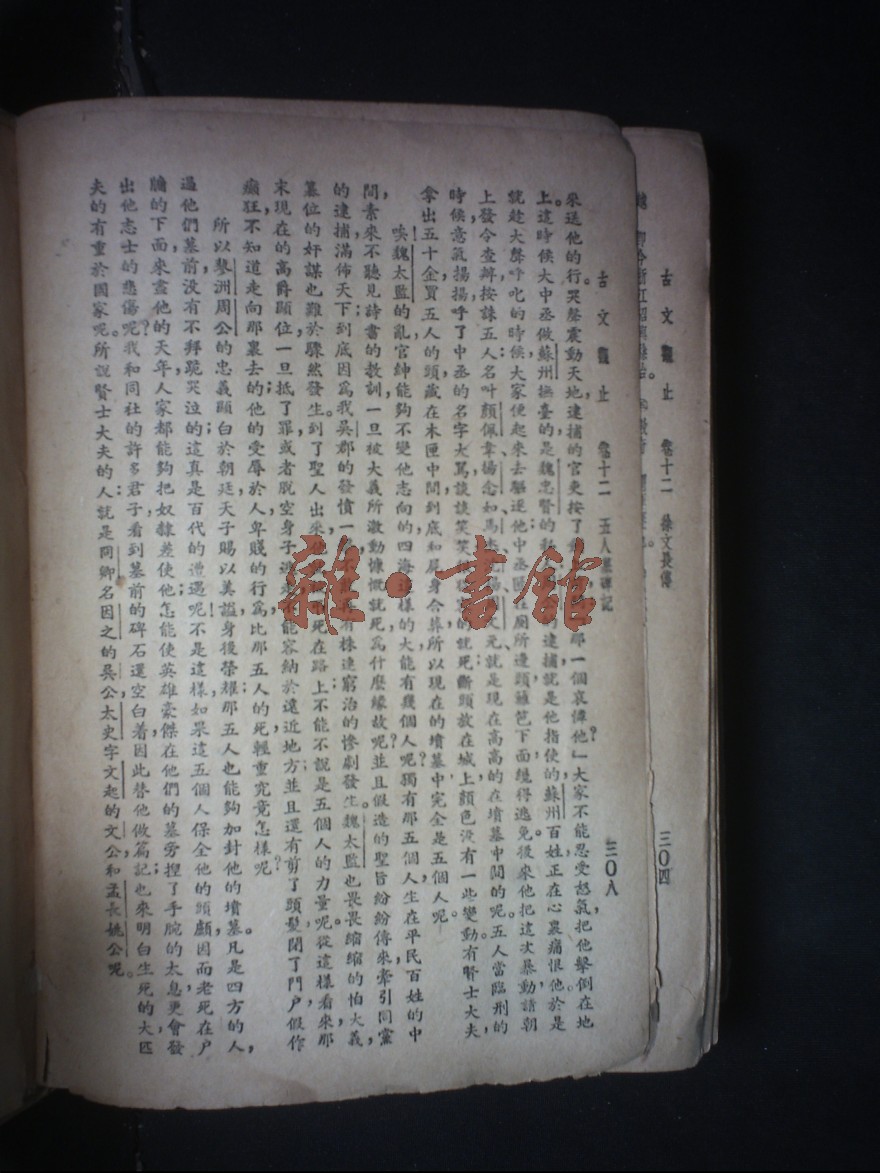 古文觀止 卷十二 徐文長傳 三〇四
古文觀止 卷十二 五人墓碑記 三〇八
來送他的行。哭聲震動天地，逮捕的官吏按了 那一個哀憚他？」大家不能忍受怒氣，把他擊倒在地
上。這時候大中丞做蘇州撫臺的，是魏忠賢的私 的逮捕，就是他指使的，蘇州百姓正在心裏痛恨他；於是
就趁大聲呼叱的時候，大家便起來去驅逐他。中丞 在廁所邊頭籬笆下面，纔得逃免。後來他把這次暴動請朝
上發令查辦，按誅五人，名叫顏佩韋、楊念如、馬杰、 文元，就是現在高高的在墳墓中間的呢。五人當臨刑的
時候，意氣揚揚，呼了中丞的名字大罵，談談笑笑 的就死，斷頭放在城上，顏色沒有一些變動。有賢士大夫，
拿出五十金，買五人的頭藏在木匣中間，到底和屍身合葬，所以現在的墳墓中，完全是五個人呢。
唉！魏太監的亂，官紳能夠不變他志向的，四海這樣的大，能有幾個人呢？獨有那五個人，生在平民百姓的中
間，素來不聽見詩書的教訓，一旦被大義所激動，慷慨就死，爲什麼緣故呢？並且假造的聖旨，紛紛傳來，牽引同黨
的逮捕，滿佈天下；到底因爲我吳郡的發憤一 有株連窮治的慘劇發生。魏太監也畏畏縮縮的怕大義，
篡位的奸謀，也難於驟然發生。到了聖人出來， 死在路上，不能不說是五個人的力量呢。從這樣看來，那
末現在的高爵顯位，一旦抵了罪，或者脫空身子逃 不能容納於遠近地方；並且還有剪了頭髮，閉了門戶，假作
癲狂，不知道走向那裏去的；他的受辱於人，卑賤的行爲，比那五人的死，輕重究竟怎樣呢？
所以蓼洲周公的忠義，顯白於朝廷，天子賜以美謚，身後榮耀；那五人也能夠加封他的墳墓。凡是四方的人，
過他們墓前，沒有不拜跪哭泣的；這真是百代的遭遇呢！不是這樣，如果這五個人保全他的頭顱，因而老死在戶
牖的下面，來盡他的天年，人家都能夠把奴隸差使他；怎能使英雄豪傑，在他們的墓旁捏了手腕的太息，更會發
出他志士的悲傷呢？我和同社的許多君子，看到墓前的碑石還空白着，因此替他做篇記，也來明白生死的大，匹
夫的有重於國家呢。所說賢士大夫的人：就是冏卿名因之的吳公，太史字文起的文公，和孟長姚公呢。
雜·書館